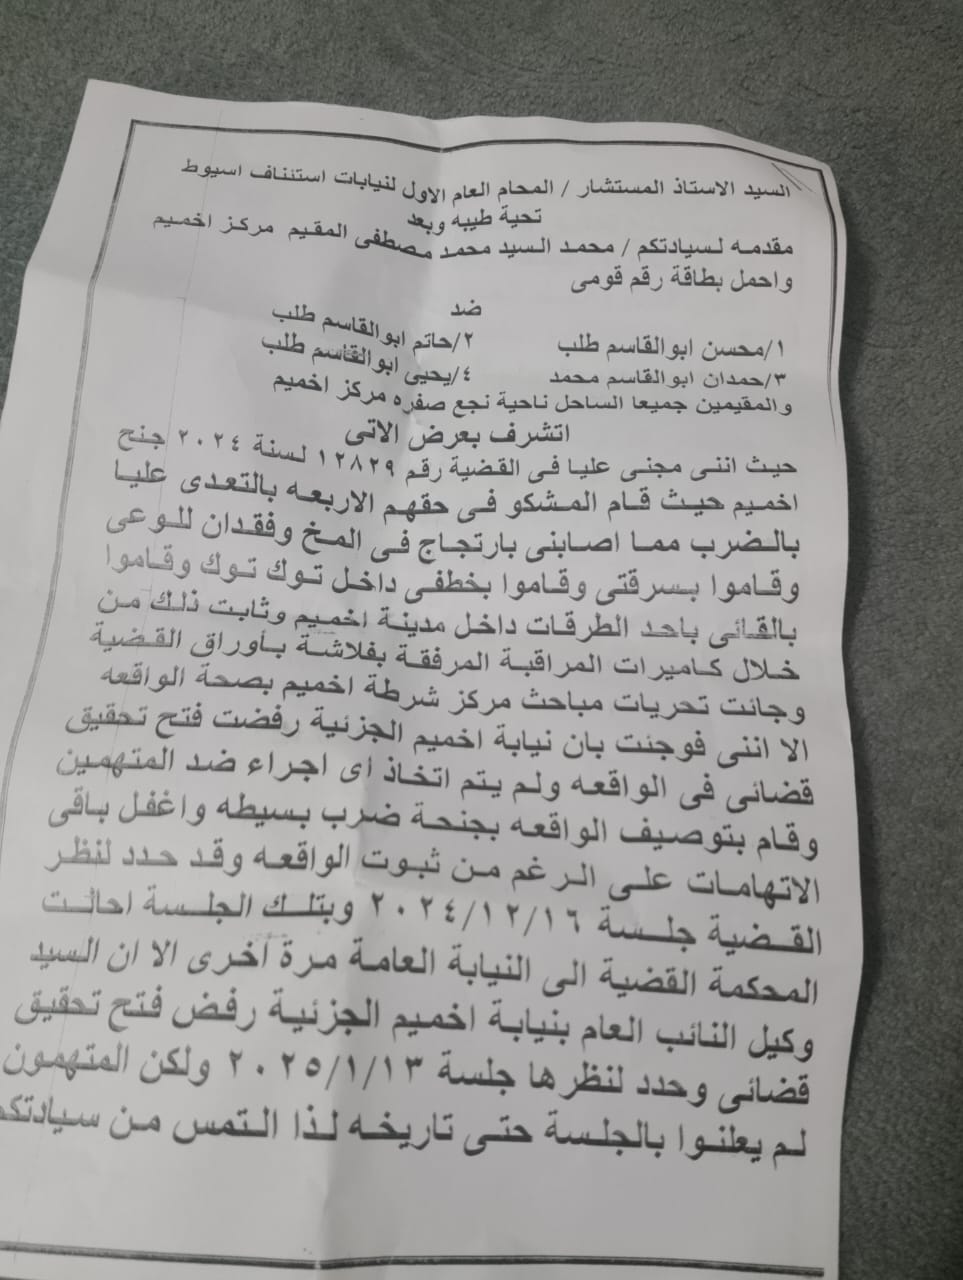 السيد الاستاذ المستشار / المحام العام الاول لنيابات استئناف اسيوط
تحية طيبه وبعد
مقدمه لسيادتكم / محمد السيد محمد مصطفى المقيم مركز اخميم
واحمل بطاقة رقم قومى
ضد
١/محسن ابوالقاسم طلب ٢/حاتم ابوالقاسم طلب
٣/حمدان ابوالقاسم محمد ٤/يحيى ابوالقاسم طلب
والمقيمين جميعا الساحل ناحية نجع صفره مركز اخميم
اتشرف بعرض الاتى
حيث اننى مجنى عليا فى القضية رقم ١٢٨٢٩ لسنة ٢٠٢٤ جنح
اخميم حيث قام المشكو فى حقهم الاربعه بالتعدى عليا
بالضرب مما اصابنى بارتجاج فى المخ وفقدان للوعى
وقاموا بسرقتى وقاموا بخطفى داخل توك توك وقاموا
بالقائى باحد الطرقات داخل مدينة اخميم وثابت ذلك من
خلال كاميرات المراقبة المرفقة بفلاشة بأوراق القضية
وجائت تحريات مباحث مركز شرطة اخميم بصحة الواقعه
الا اننى فوجئت بان نيابة اخميم الجزئية رفضت فتح تحقيق
قضائى فى الواقعه ولم يتم اتخاذ اى اجراء ضد المتهمين
وقام بتوصيف الواقعه بجنحة ضرب بسيطه واغفل باقى
الاتهامات على الرغم من ثبوت الواقعه وقد حدد لنظر
القضية جلسة ٢٠٢٤/١٢/١٦ وبتلك الجلسة احالت
المحكمة القضية الى النيابة العامة مرة اخرى الا ان السيد
وكيل النائب العام بنيابة اخميم الجزئية رفض فتح تحقيق
قضائى وحدد لنظرها جلسة ٢٠٢٥/١/١٣ ولكن المتهمون
لم يعلنوا بالجلسة حتى تاريخه لذا التمس من سيادتكم